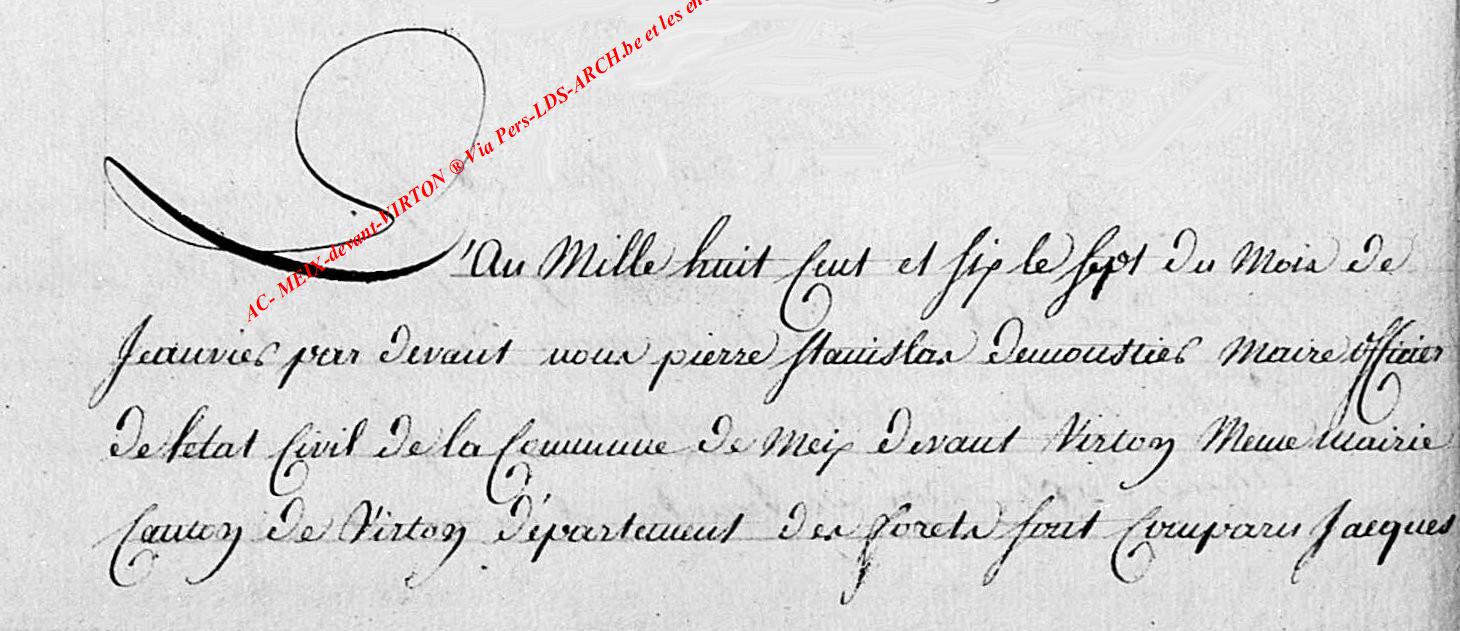 AC- MEIX-devant-VIRTON ® Via Pers-LDS-ARCH.be et les
L'An Mille huit Cent et six le sept du Mois de
Jeanvier par devant nous pierre stanislas demoustier Maire officier
de letat Civil de la Commune de Meix devant Virton Meme mairie
Canton de Virton département des forets sont Comparus Jacques